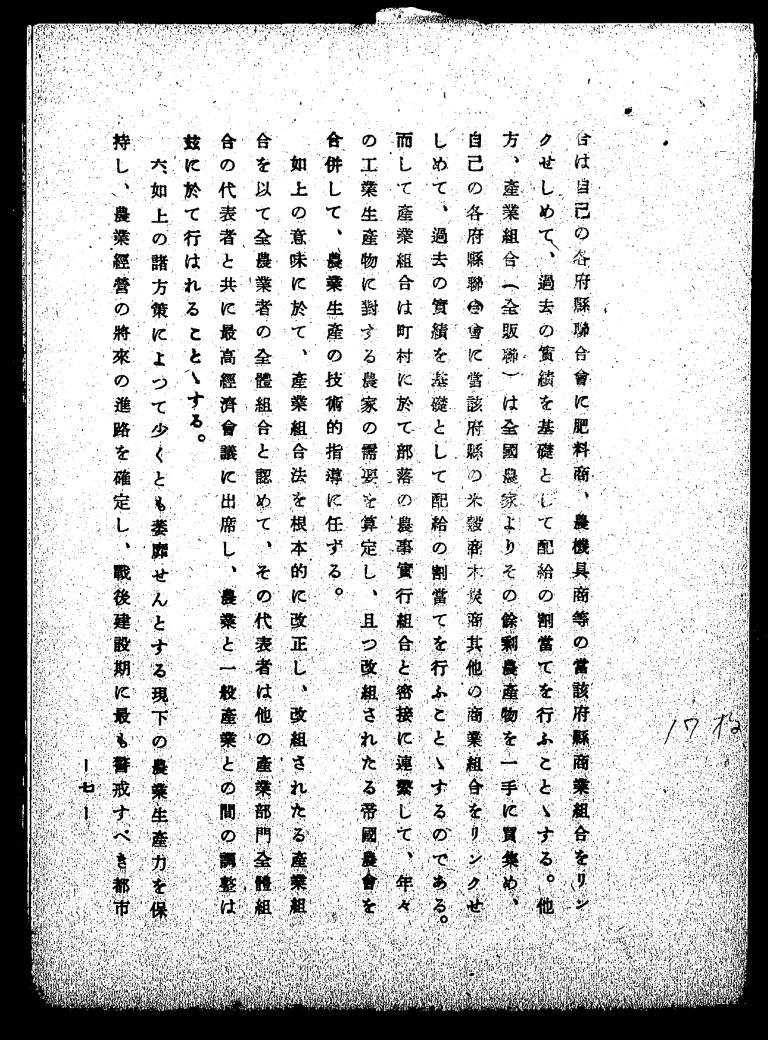 合は自己の各府縣聯合會に肥料商、農機具商等の當該府縣商業組合をリン
クせしめて、過去の實績を基礎として配給の割當てを行ふことゝする。他
方、產業組合（全販聯）は全國農家よりその餘剩農產物を一手に買集め、
自己の各府縣聯合會に當該府縣の米穀商木炭商其他の商業組合をリンクせ
しめて、過去の實績を基礎として配給の割當てを行ふことゝするのである。
而して產業組合は町村に於て部落の農事實行組合と密接に連繫して、年々
の工業生產物に對する農家の需要を算定し、且つ改組されたる帝國農會を
合併して、農業生產の技術的指導に任ずる。
如上の意味に於て、產業組合法を根本的に改正し、改組されたる產業組
合を以て全農業者の全體組合と認めて、その代表者は他の產業部門全體組
合の代表者と共に最高經濟會議に出席し、農業と一般產業との間の調整は
玆に於て行はれることゝする。
六、如上の諸方策によつて少くとも萎靡せんとする現下の農業生產力を保
持し、農業經營の將來の進路を確定し、戰後建設期に最も警戒すべき都市
—七—
17